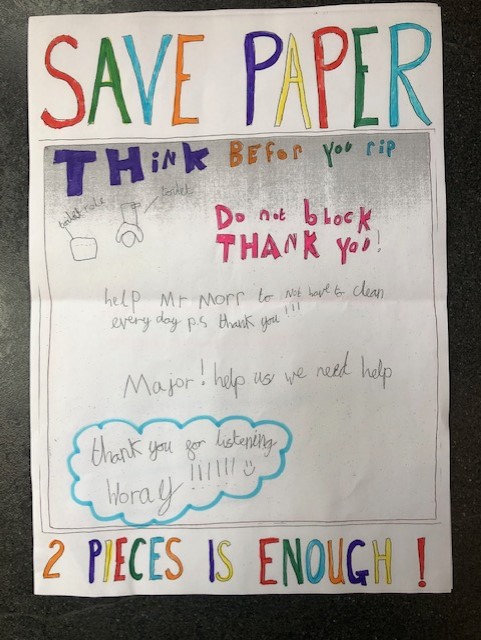 SAVE PAPER
THiNK BEfor you rip
toilet role toilet
Do not block
THANK you!
help Mr Morr to not have to clean
every day p.s thank you !!!
Major! help us we need help
thank you for listening
Woray !!!!!!
2 PIECES IS ENOUGH !